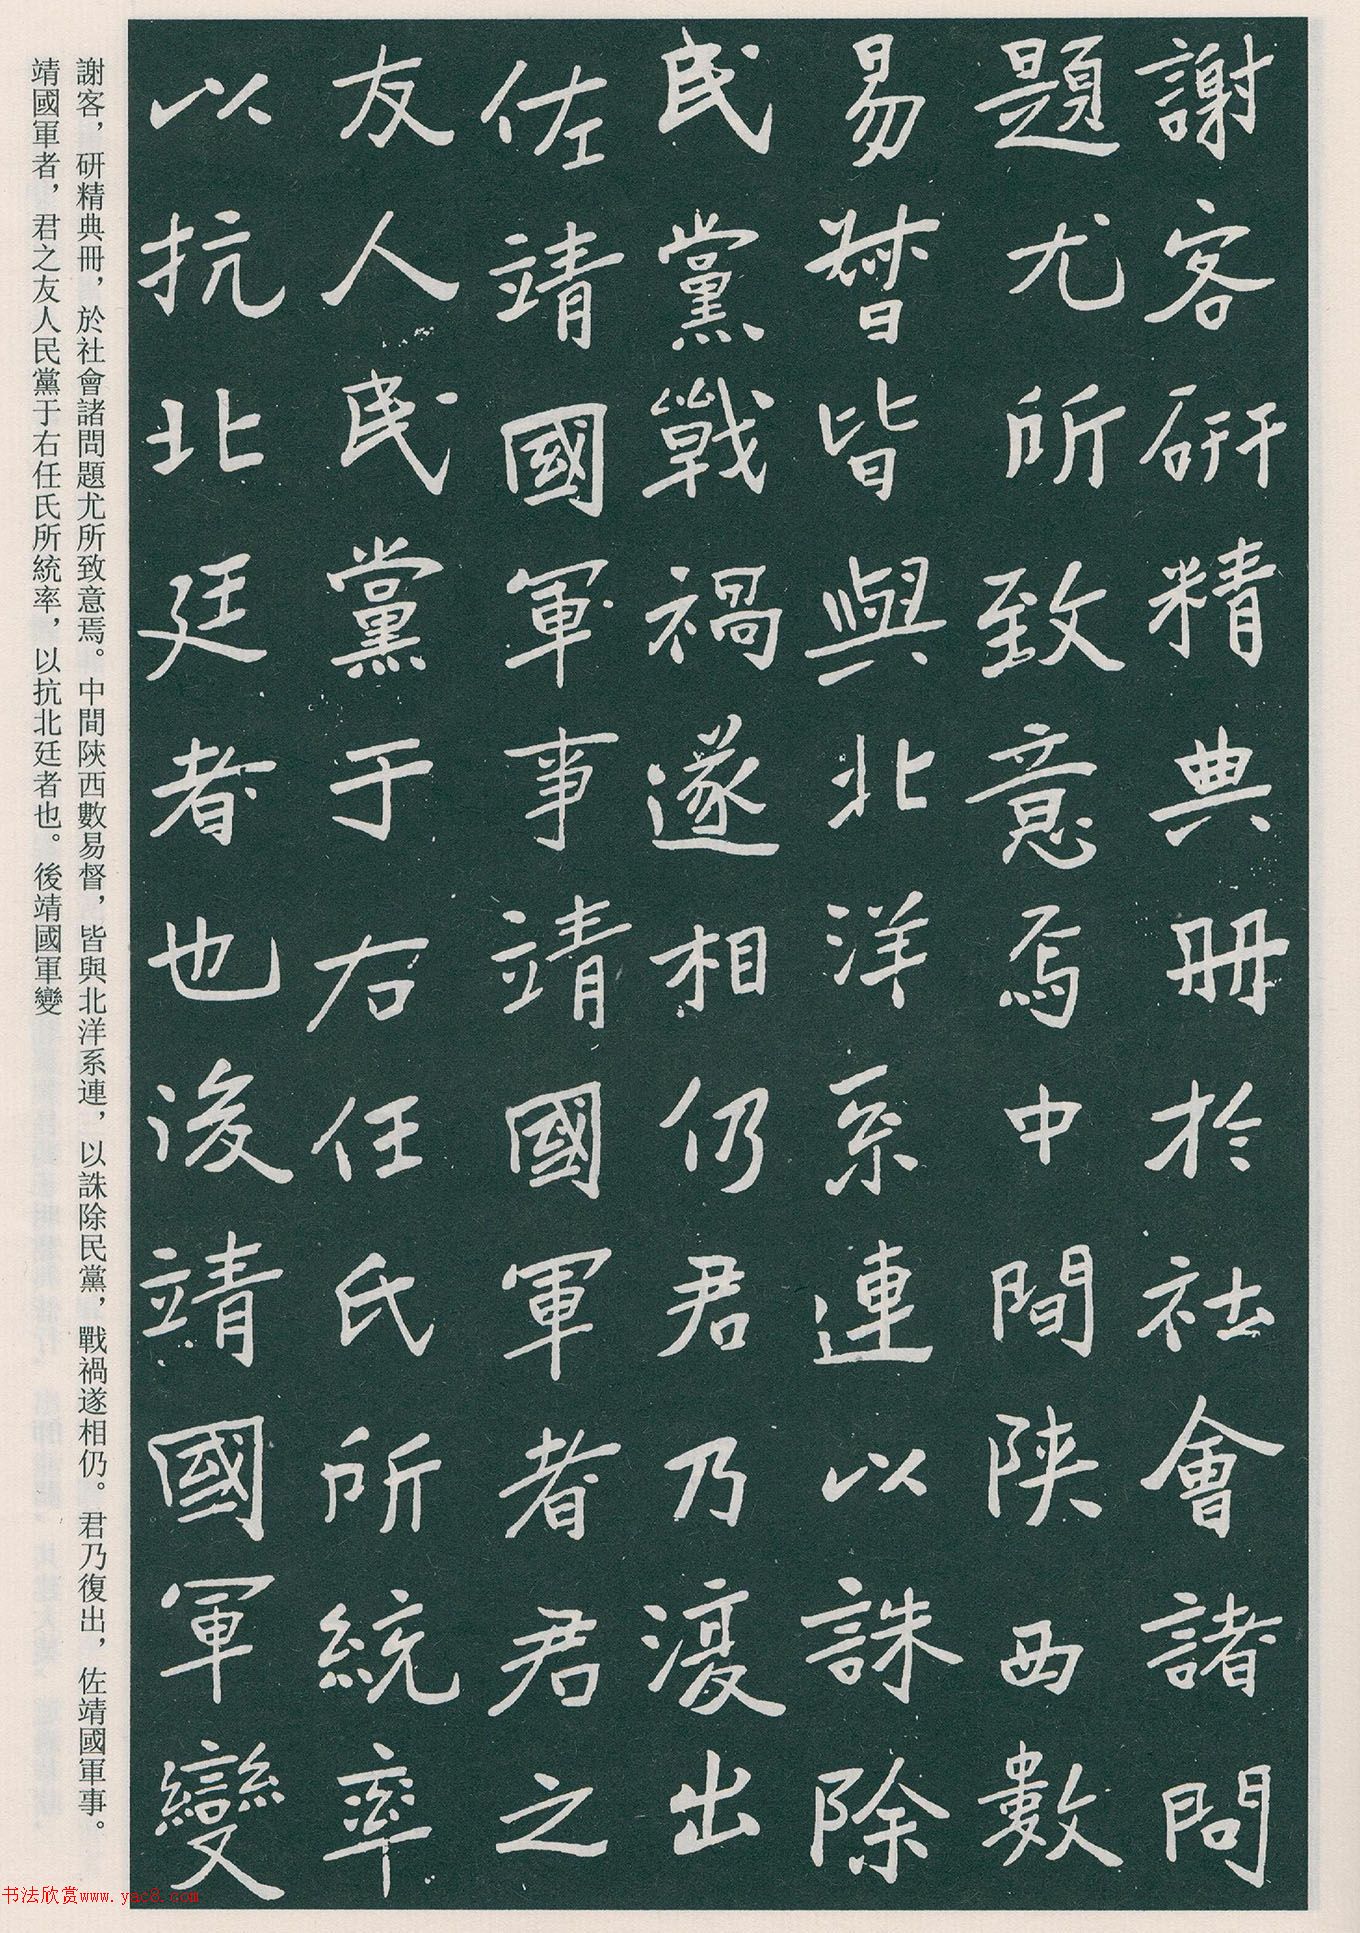 謝客研精典冊於社會諸問
題尤所致意焉中間陝西數
易督皆與北洋系連以誅除
民黨戰禍遂相仍君乃復出
佐靖國軍事靖國軍者君之
友人民黨于右任氏所統率
以抗北廷者也後靖國軍變
謝客，研精典冊，於社會諸問題尤所致意焉。中間陝西數易督，皆與北洋系連，以誅除民黨，戰禍遂相仍。君乃復出，佐靖國軍事。
靖國軍者，君之友人民黨于右任氏所統率，以抗北廷者也。後靖國軍變
书法欣赏www.yac8.com